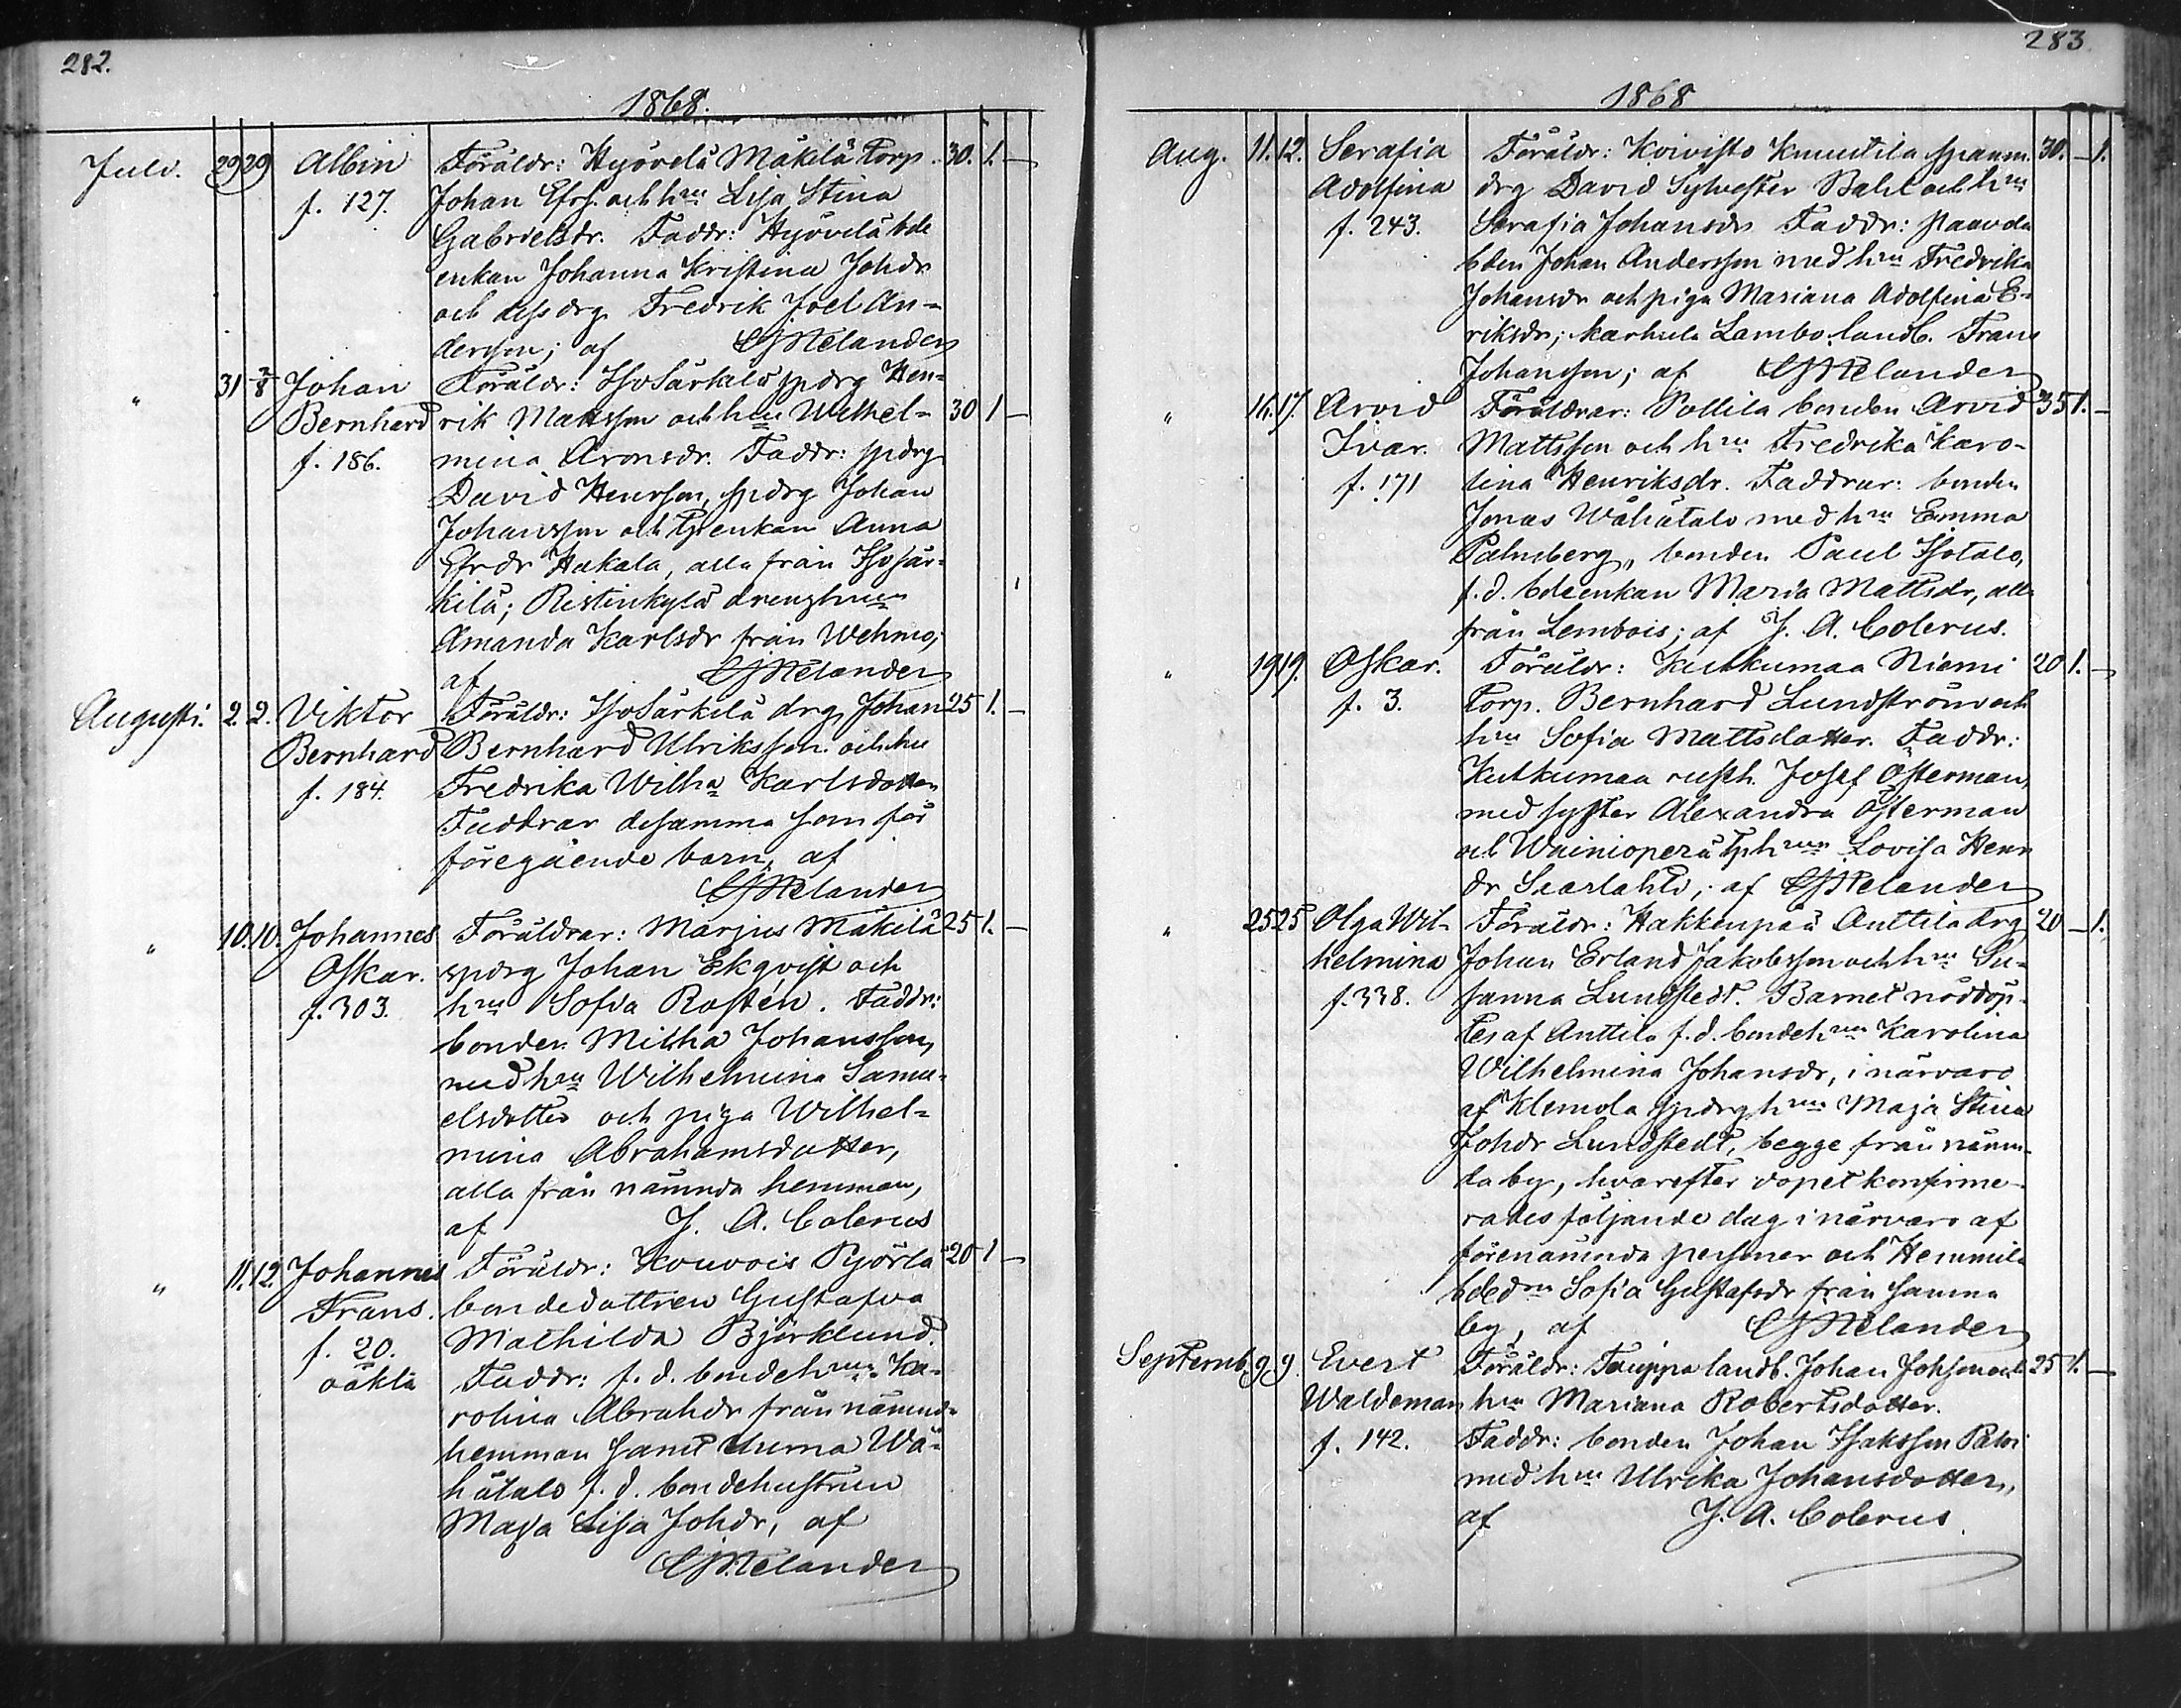 282.
1868.
Juli. 29 29 Albin Föräldr: Hyövelä Mäkilä Torp. 30. 1. —
f. 127. Johan Efrs. och hru Lisa Stina
Gabrielsdr. Faddr: Hyövelä bde
enkan Johanna Kristina Johdr
och dess drg Fredrik Joel An-
dersson; af Melander
" 31 2/8 Johan Föräldr: IsoSärkilä spdrg Hen-
Bernhard rik Mattsson och hru Wilhel- 30 1 —
f. 186. mina Aronsdr. Faddr: spdrg
David Henrsson, spdrg Johan
Johansson och Tpenkan Anna
Efrdr Hakala, alla från Isosär-
kilä; Ristinkylä drenghru
Amanda Karlsdr från Wehmo;
af Melander
Augusti. 2. 2. Viktor Föräldr: IsoSärkilä drg Johan 25 1. —
Bernhard Bernhard Ulriksson och hu
f. 184. Fredrika Wilha Karlsdotter
Faddrar desamma som för
föregående barn, af
Melander
" 10. 10. Johannes Föräldrar: Marjus Mäkilä 25 1. —
Oskar. spdrg Johan Ekqvist och
f. 303. hru Sofia Rostén. Faddr:
bonden Mikha Johansson,
med hru Wilhelmina Samu-
elsdotter och piga Wilhel-
mina Abrahamsdotter,
alla från nämnda hemman,
af J. A. Colerus
" 11. 12. Johannes Föräldr: Kouvois Pjörla 20 1 —
Frans. bondedottren Gustafva
f. 20. Mathilda Björklund.
oäkta Faddr: f. d. bondehru Ka-
rolina Abrahdr från nämnda
hemman samt Wä-
hätalo f. d. bondehustrun
Maja Lisa Johdr, af
Melander
283.
1868
Aug. 11. 12. Serafia Föräldr: Koivisto Knuutila spanm. 30. — 1.
Adolfina drg David Sylvester och hru
f. 243. Serafia Johansdr Faddr: Paavola
bden Johan Andersson med hru Fredrika
Johansdr och piga Mariana Adolfina E-
riksdr; Karhula Lambo landb. Frans
Johansson; af Melander
" 16. 17. Arvid Föräldrar: Pollila bonden Arvid 35 1. —
Ivar. Mattsson och hru Fredrika Karo-
f. 171 lina Henriksdr. Faddrar: bonden
Jonas Wähätalo med hru Emma
Palmberg, bonden Paul Isotalo,
f. d. bdeenkan Maria Mattsdr, alla
från Lembois; af J. A. Colerus.
" 19 19. Oskar. Föräldr: Kutkumaa Niemi 20 1. —
f. 3. Torp. Bernhard Lundström och
hru Sofia Mattsdotter. Faddr:
Kutkumaa rusth. Josef Österman,
med syster Alexandra Österman
och Wainioperä Tphru Lovisa Henr
dr Saarlahti; af Melander
" 25 25 Olga Wil- Föräldr: Hakkenpää Anttila drg 20 — 1.
helmina Johan Erland Jakobsson och hru Su-
f. 338. sanna Lundstedt. Barnet nöddöp-
tes af Anttila f. d. bondehru Karolina
Wilhelmina Johansdr, i närvaro
af Klemola spdrghru Maja Stina
Johdr Lundstedt, begge från nämn-
da by, hvarefter dopet konfirme-
rades följande dag i närvaro af
förenämnda personer och Hemmila
bdedrn Sofia Gustafsdr från samma
by, af Melander
Septemb. 9 9. Evert Föräldr: Tauppa landb. Johan Johsson och 25 1. —
Waldemar hru Mariana Robertsdotter.
f. 142. Faddr: bonden Johan Isaksson Palvi
med hru Ulrika Johansdotter,
af J. A. Colerus.